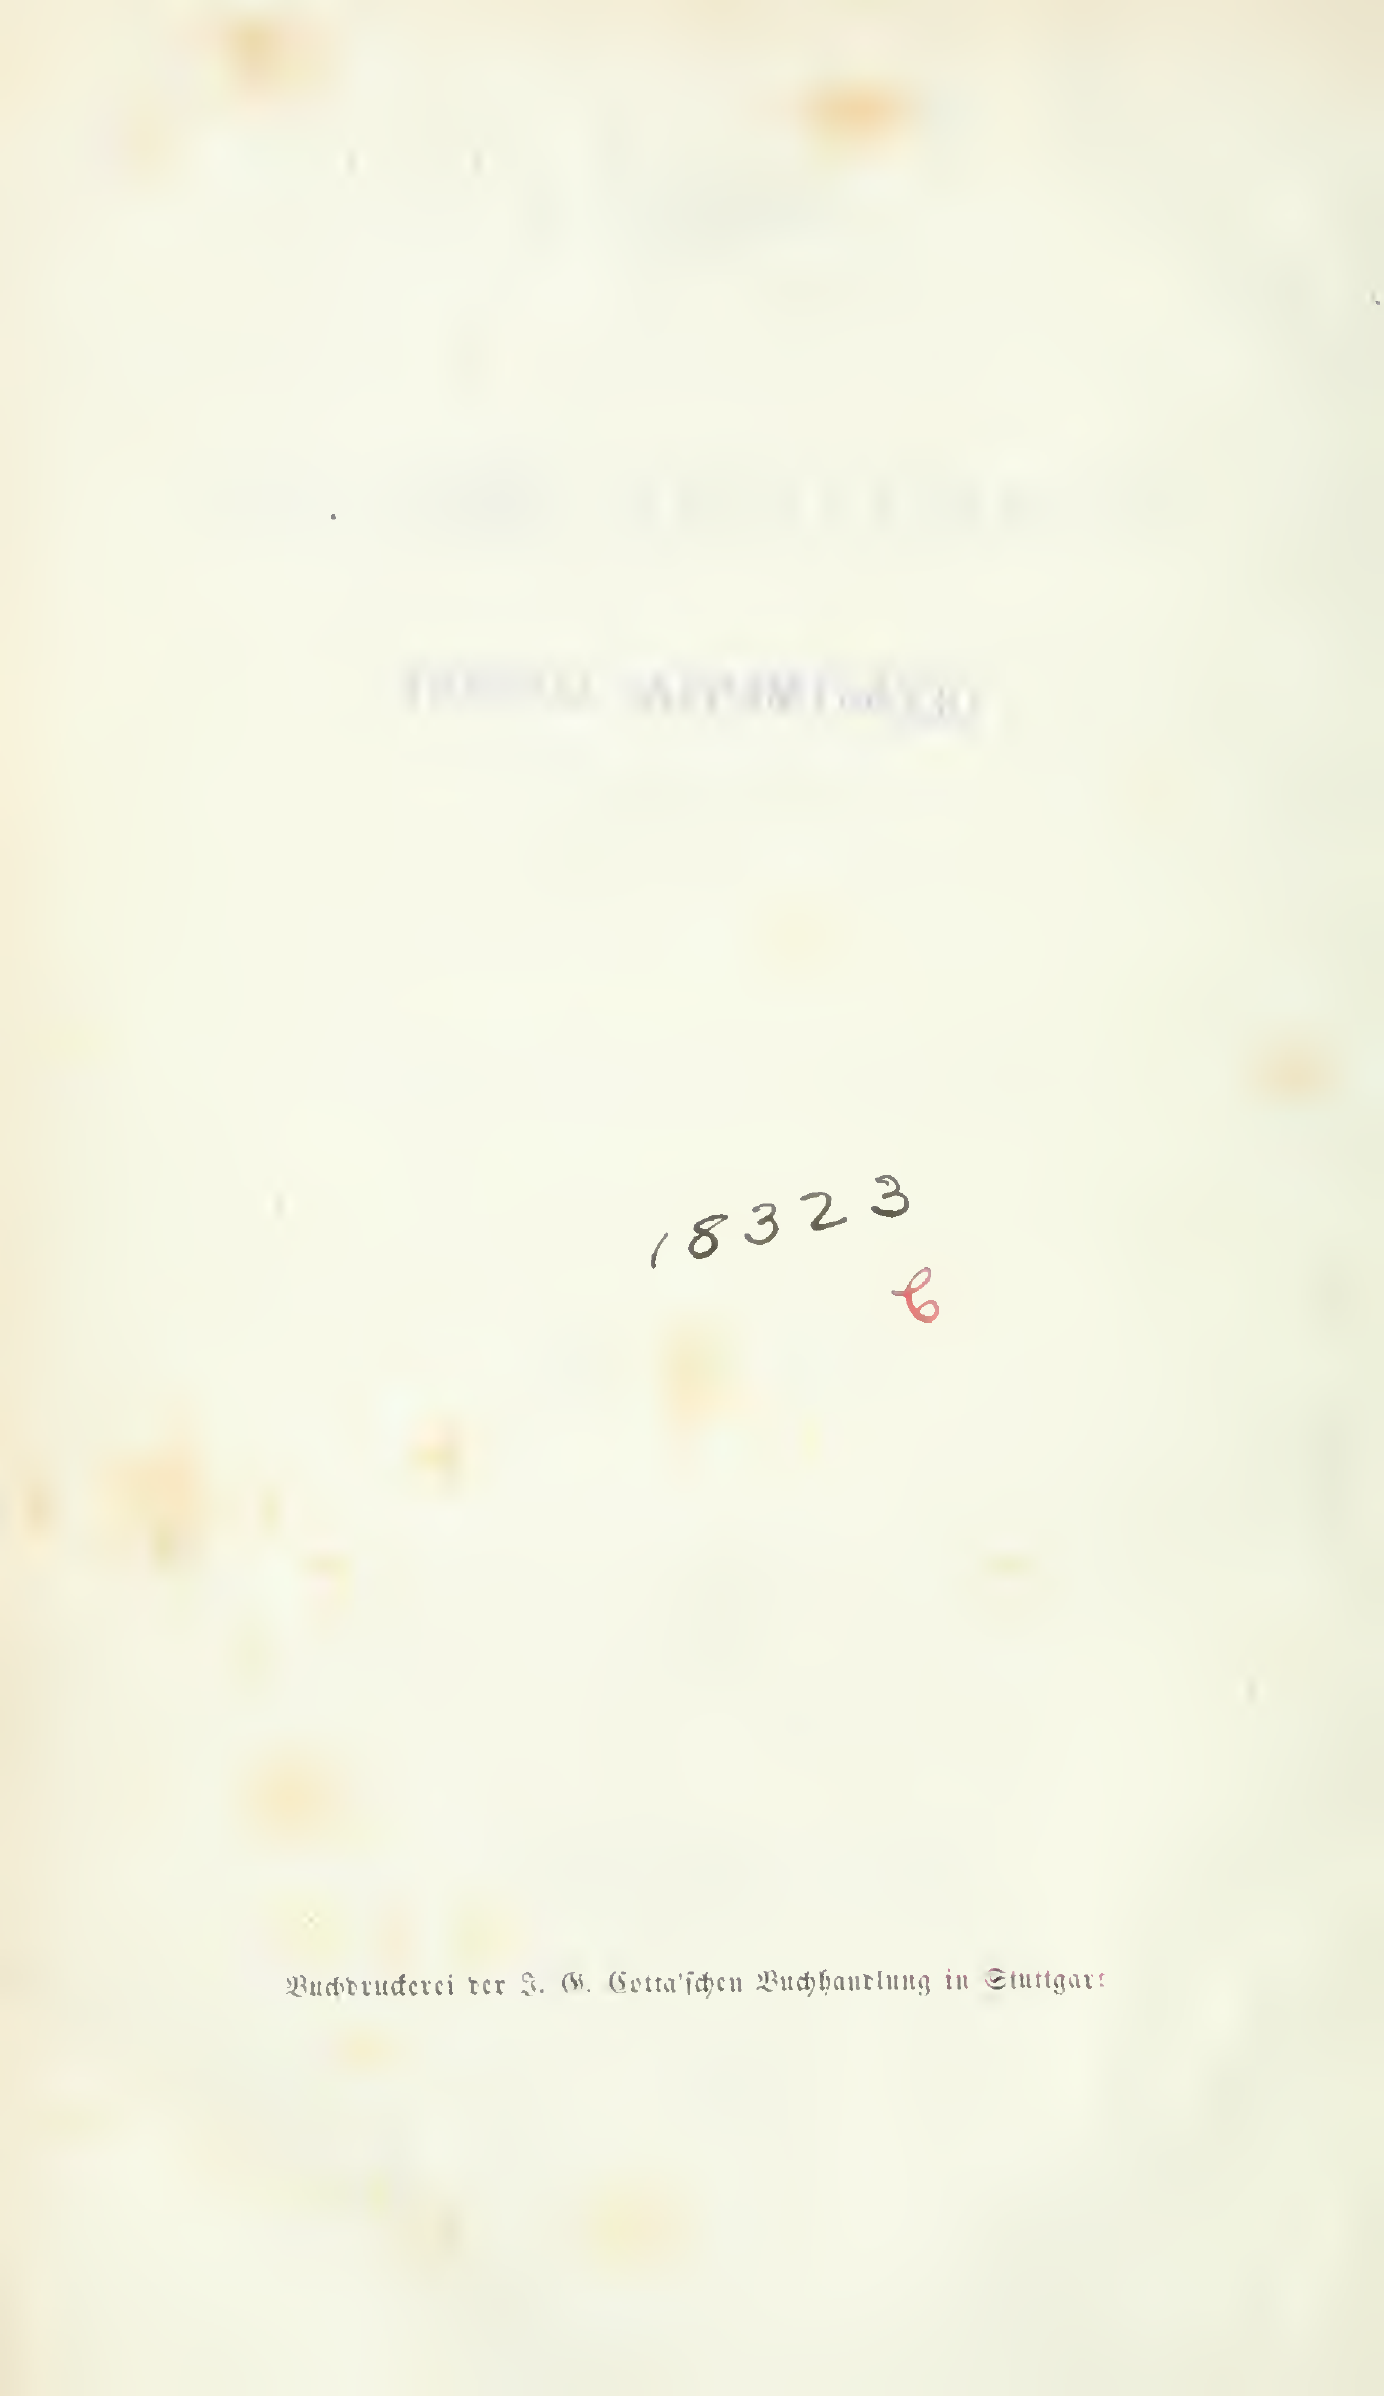 18323
Buchdruckerei der J. G. Cotta'schen Buchhandlung in Stuttgart